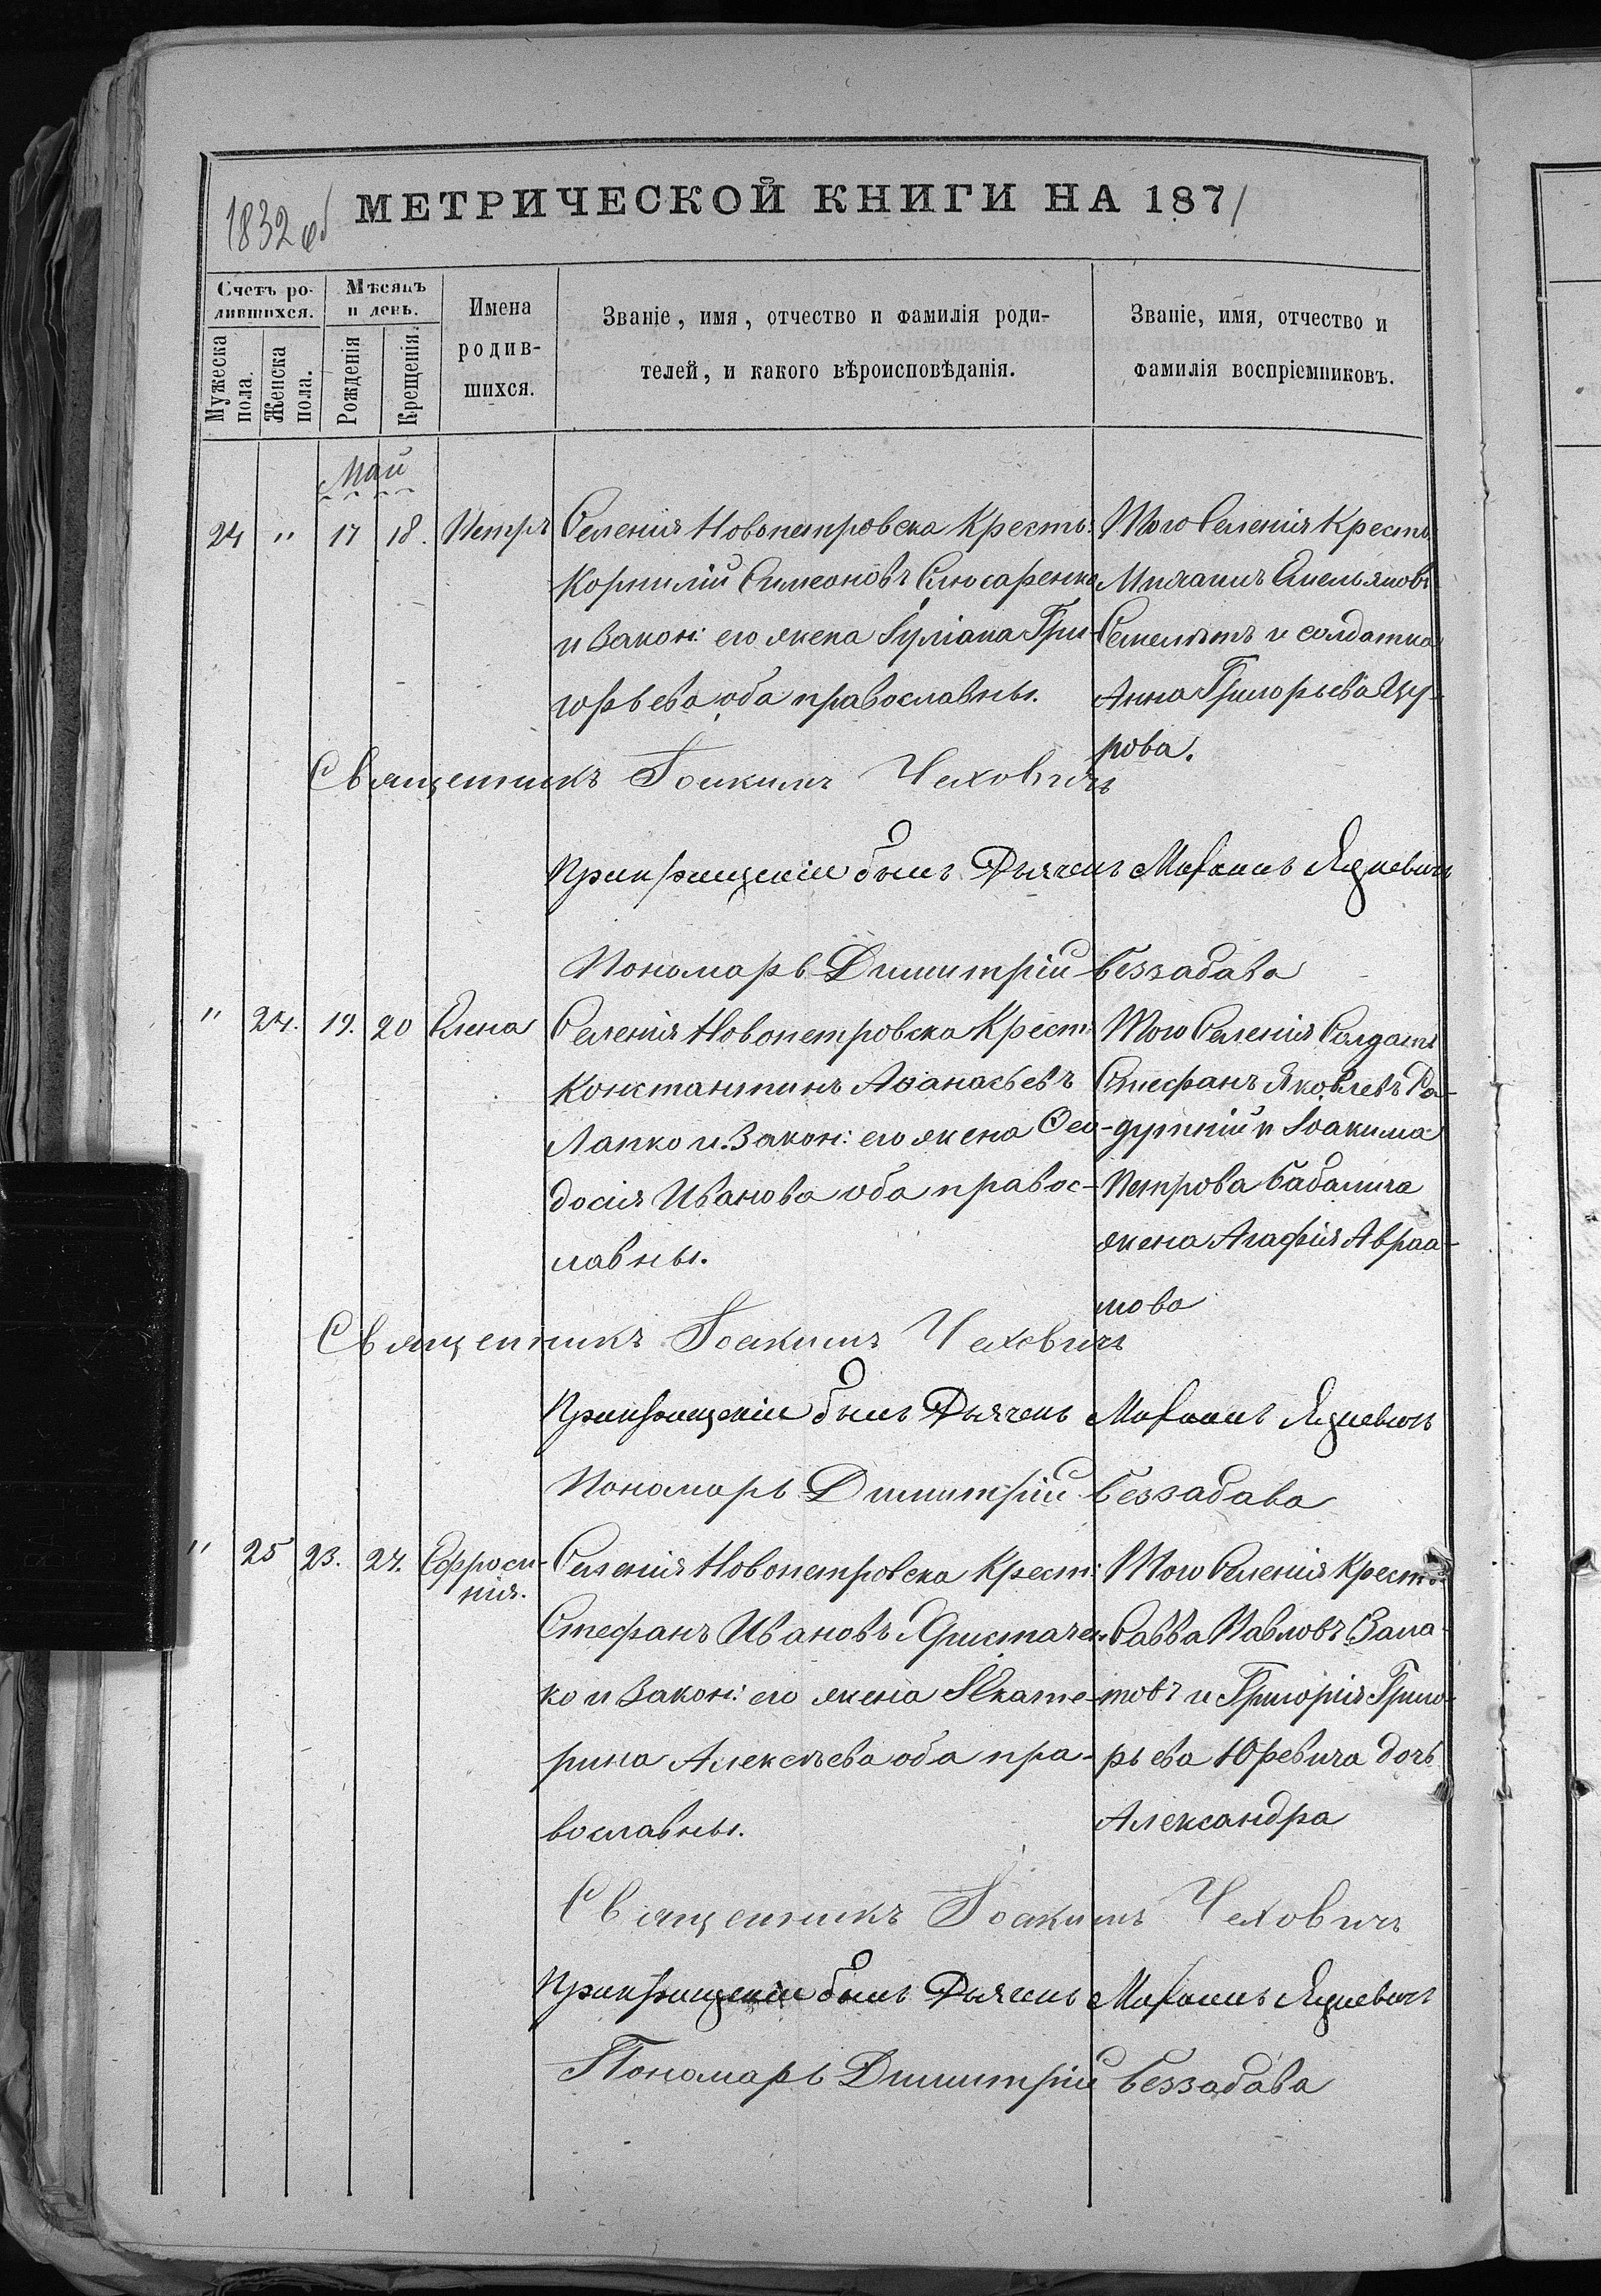 1832 об
МЕТРИЧЕСКОЙ КНИГИ НА 1871
Счетъ ро-
дившихся.
Мужеска пола.
Женска пола.
Мѣсяцъ
и день.
Рожденія
Крещенія.
Имена
родив-
шихся.
Званіе, имя, отчество и фамилія роди-
телей, и какого вѣроисповѣданія.
Званіе, имя, отчество и
фамилія воспріемниковъ.
Май
24 " 17 18. Петръ
Селенія Новопетровска Кресть:
Корнилій Симеоновъ Слюсаренко
и Закон: его жена Іуліана Гри-
горьева оба православны.
Того Селенія Кресть
Михаилъ Емельяновъ
и солдатка
Анна Григорьева
рова.
Священникъ Іоакимъ Чеховичъ
При крещеніи былъ Дьячекъ Михаилъ
Пономарь Димитрій Беззабава
" 24. 19. 20 Елена
Селенія Новопетровска Крест:
Константинъ Аѳанасьевъ
Лапко и Закон: его жена Ѳео-
досія Иванова оба правос-
лавны.
Того Селенія Солдатъ
Стефанъ Яковлевъ Ра-
дуцкій и Іоакима
Петрова Бабамича
жена Агафія Авраа-
мова
Священникъ Іоакимъ Чеховичъ
При крещеніи былъ Дьячекъ Михаилъ
Пономарь Димитрій Беззабава
" 25 23. 24. Ефроси-
нія.
Селенія Новопетровска Крест:
Стефанъ Ивановъ
ко и Закон: его жена Екате-
рина Алексѣева оба пра-
вославны.
Того Селенія Кресть:
Савва Павловъ
и Григорія Григо-
рьева Юревича дочь
Александра
Священникъ Іоакимъ Чеховичъ
При крещеніи былъ Дьячекъ Михаилъ
Пономарь Димитрій Беззабава